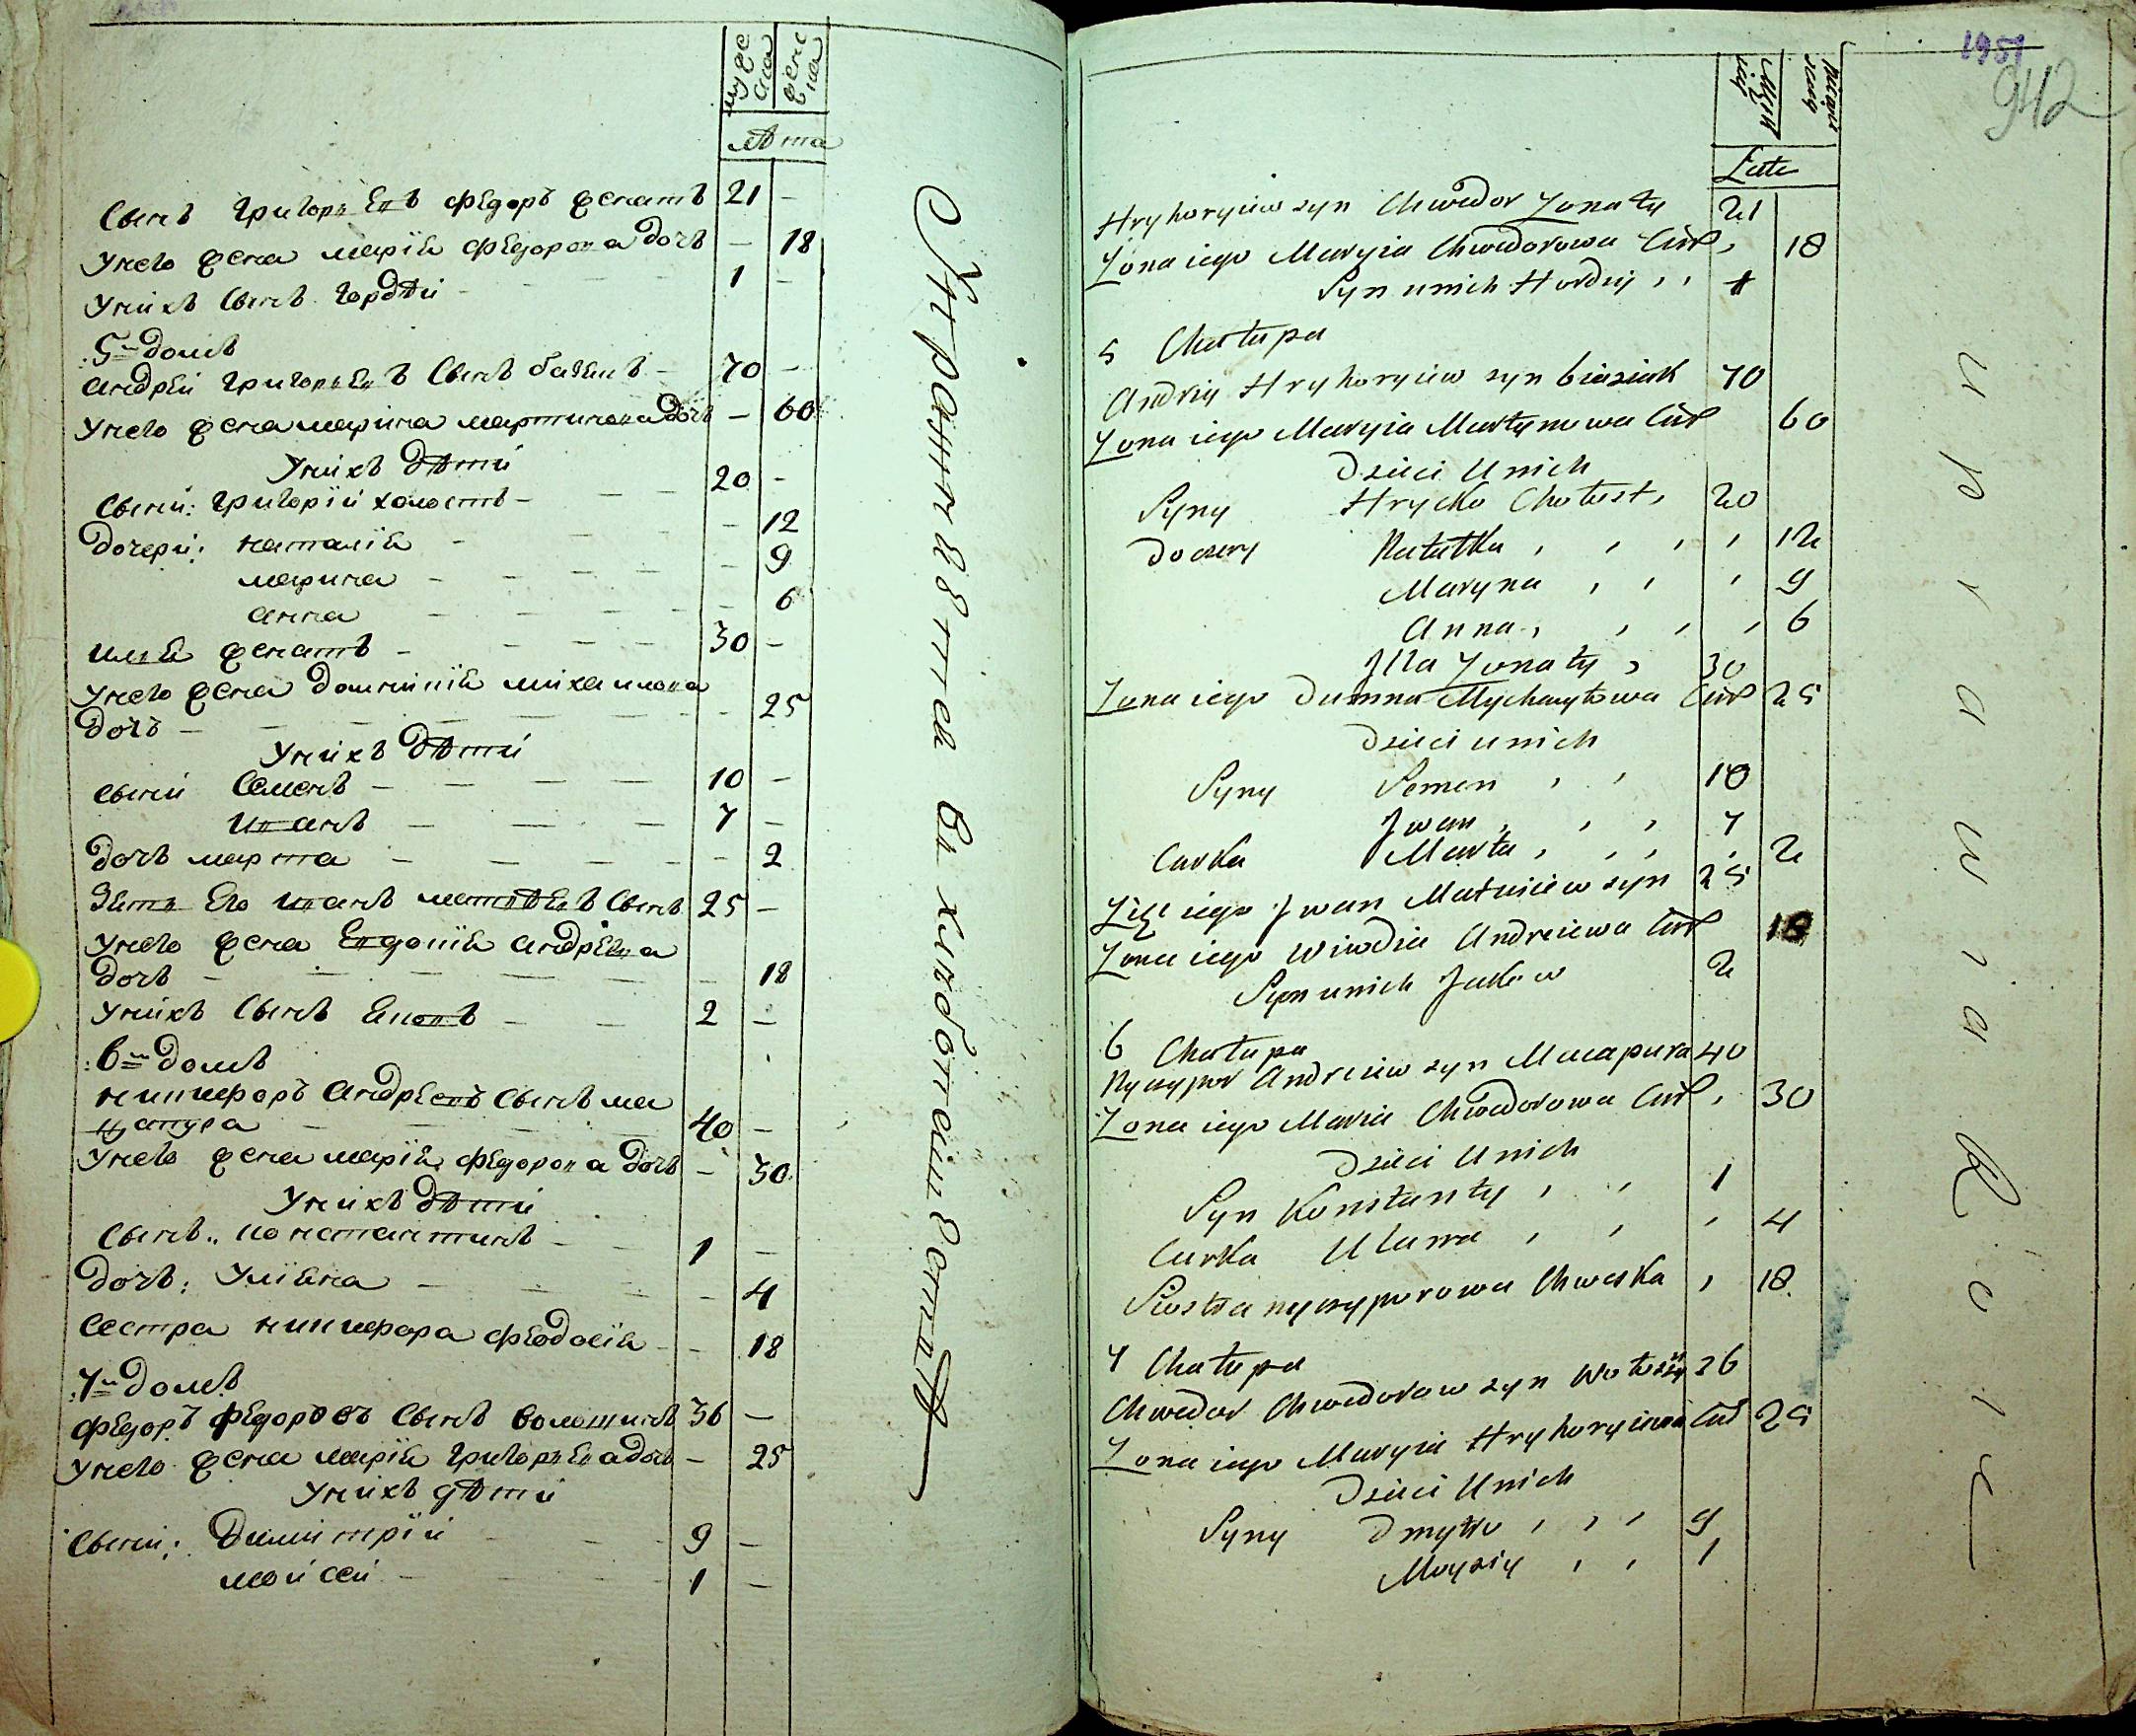 мужеска
женска
лѣта
Сынъ григорьевъ федоръ женатъ 21 -
Унего жена марія федорова дочь - 18
Унихъ сынъ гордѣй - 1 -
5й домъ
андрей григорьевъ сынъ - 70 -
Унего жена марина мартинова дочь - 60
Унихъ дѣти
Сыни: григорій холостъ - 20 -
дочери: наталія - 12
марина - 9
анна - 6
илья женатъ - 30 -
Унего жена домникія михаилова
дочь - 25
Унихъ дѣти
сыни семенъ - 10 -
иванъ - 7 -
дочь марта - 2
Зять его иванъ матвѣевъ сынъ 25 -
Унего жена евдокія андреева
дочь - 18
Унихъ сынъ яковъ - 2 -
6й домъ
никифоръ андреевъ сынъ ма
цапура - 40 -
Унего жена марія федорова дочь - 30
Унихъ дѣти
Сынъ: константинъ - 1 -
дочь: Уліяна - 4
Сестра никифора феодосія - 18
7й домъ
федоръ федоровъ сынъ волошинъ 36 -
Унего жена марія григорьева дочь - 25
Унихъ дѣти
Сыни: димитрій 9 -
мойсей - 1 -
1951
942
Late
Hryhoryiew syn Chwedor Zonaty 21
Zona iego Maryia Chwedorowa Cur, 18
Syn unich Hordiy , , 1
5 Chałupa
Andriy Hryhoryiew syn 70
Zona iego Maryia Martynowa Cur 60
Dzieci Unich
Syny Hrycko Chołost, 20
Doczery Natałka , , , , 12
Maryna , , , 9
Anna , , , , 6
Jlla Zonaty , 30
Zona iego Dumna Mychayłowa Cur 25
Dzieci unich
Syny Semen , , 10
Jwan , , , 7
Curka Marta , , , , 2
Zięć iego Jwan Matwiiew syn 25
Zona iego Wiwdia Andreiewa Cur 18
Syn unich Jakow 2
6 Chałupa
Nyczypor Andreiew syn Macapura 40
Zona iego Maria Chwedorowa Cur, 30
Dzieci Unich
Syn Konstanty , , 1
Curka Ulanna , , , 4
Siostra nyczyporowa Chweska , 18
7 Chałupa
Chwedor Chwedorow syn Wołoszyn 36
Zona iego Maryia Hryhoryiewa Cur 25
Dzieci Unich
Syny Dmytro , , , 9
Moysiy , , 1